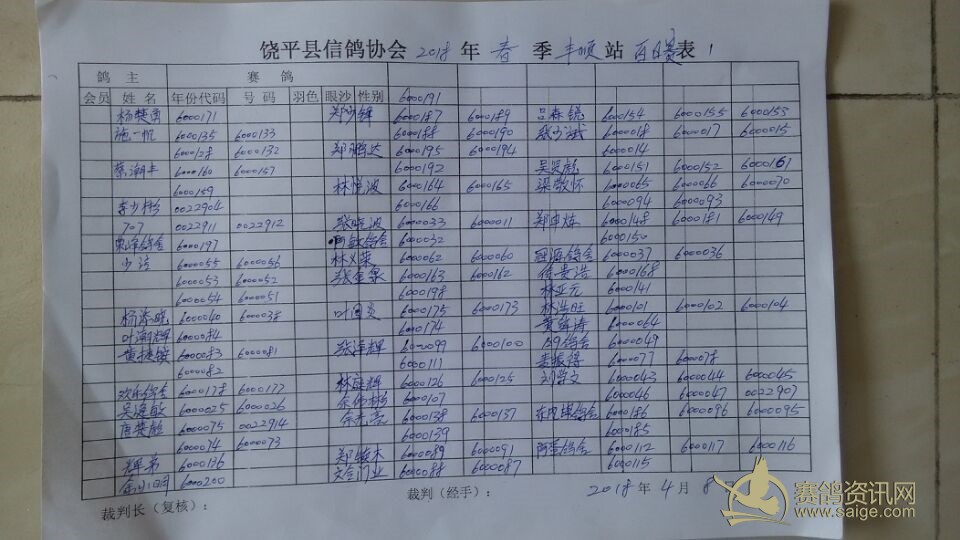 饶平县信鸽协会 2018 年 春 季 丰顺 站 百日赛 表 1
鸽 主 赛 鸽
会员 姓 名 年份代码 号 码 羽色 眼沙 性别 6000191
杨楚勇 6000171 郑少锋 6000187 6000189 吕森锐 6000154 6000155 6000153
施一帆 6000135 6000133 6000188 6000190 张少斌 6000018 6000017 6000015
6000128 6000132 郑鹏达 6000195 6000194 6000014
蔡潮丰 6000160 6000157 6000192 吴贤彪 6000151 6000152 6000161
6000159 林惜波 6000164 6000165 梁敬怀 6000065 6000066 6000070
李少彬 0022904 6000094 6000093
707 0022911 0022912 张晓波 6000033 6000011 郑申炼 6000148 6000181 6000149
6000197 阿敏鸽舍 6000032 6000150
少洁 6000055 6000056 林义荣 6000062 6000060 鸽舍 6000037 6000036
6000053 6000052 张金泉 6000163 6000162 徐贵浩 6000168
6000054 6000051 6000198 林亚元 6000141
6000040 6000038 叶国炎 6000175 6000173 林浩旺 6000101 6000102 6000104
叶潮辉 6000084 6000174 黄 涛 6000064
6000083 6000081 张泽辉 6000099 6000100 鸽舍 6000049
6000082 6000111 6000077 6000078
欢乐鸽舍 6000178 6000177 林庭辉 6000126 6000125 刘 文 6000043 6000044 6000045
吴 敏 6000025 6000026 余 彬 6000107 6000046 6000047 0022907
唐 6000075 0022914 余光亮 6000138 6000137 鸽舍 6000186 6000096 6000095
6000074 6000073 6000139 6000185
辉弟 6000136 郑 木 6000089 6000091 阿蛋鸽舍 6000112 6000117 6000116
6000200 文合门业 6000088 6000087 6000115
裁判长（复核）： 裁判（经手）： 2018 年 4 月 8
赛鸽资讯网
www.saige.com